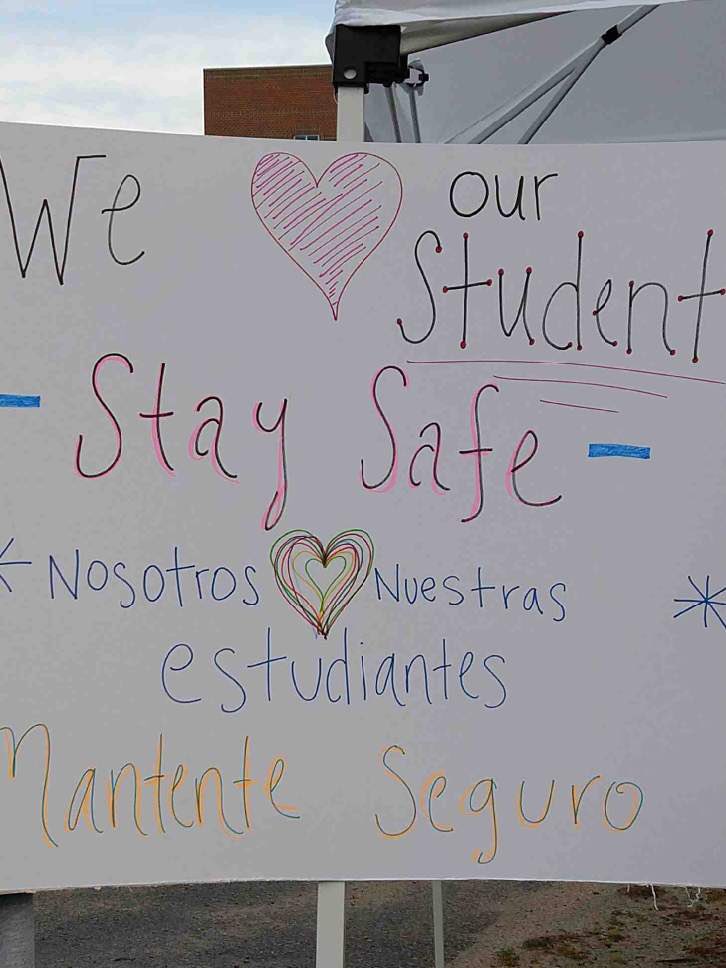 We our
Student
Stay Safe
Nosotros Nuestras
estudiantes
Mantente Seguro